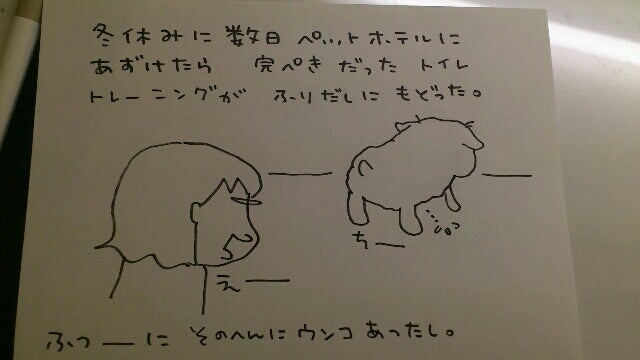 冬休みに 数日 ペットホテルに
あずけたら 完ぺき だった トイレ
トレーニングが ふりだしに もどった。
え——
ち——
ふつ——に そのへんに ウンコ あったし。